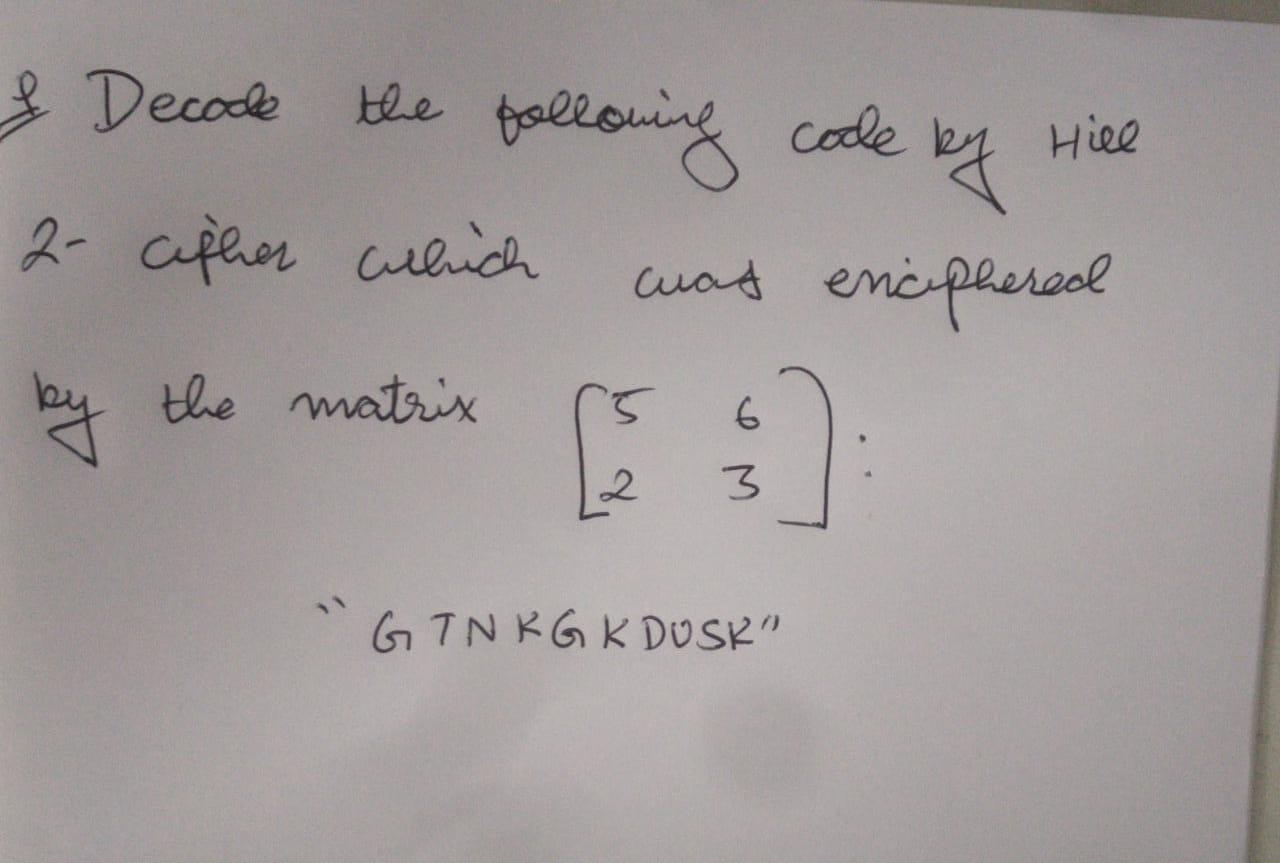 Decode the following code by Hill
2- cipher which was enciphered
by the matrix [5 6
2 3] :
"GTNKGKDUSK"